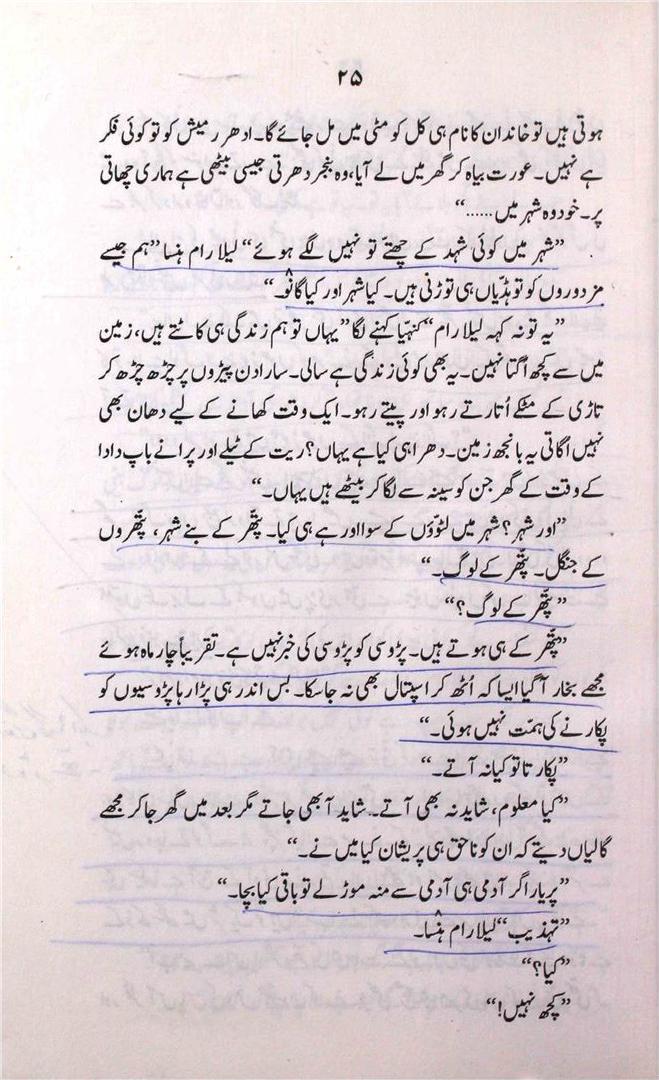 ۲۵
ہوتی ہیں تو خاندان کا نام ہی کل کو مٹی میں مل جائے گا۔ ادھر رمیش کو تو کوئی فکر
ہے نہیں۔ عورت بیاہ کر گھر میں لے آیا، وہ بنجر دھرتی جیسی بیٹھی ہے ہماری چھاتی
پر۔ خود وہ شہر میں ......“
”شہر میں کوئی شہد کے چھتے تو نہیں لگے ہوئے“ لیلا رام ہنسا ”ہم جیسے
مزدوروں کو تو ہڈیاں ہی توڑنی ہیں۔ کیا شہر اور کیا گانو۔“
”یہ تو نہ کہہ لیلا رام“ کنہیا کہنے لگا ”یہاں تو ہم زندگی ہی کاٹتے ہیں، زمین
میں سے کچھ اگتا نہیں۔ یہ بھی کوئی زندگی ہے سالی۔ سارا دن پیڑوں پر چڑھ چڑھ کر
تاڑی کے مٹکے اُتارتے رہو اور پیتے رہو۔ ایک وقت کھانے کے لیے دھان بھی
نہیں اگاتی یہ بانجھ زمین۔ دھرا ہی کیا ہے یہاں؟ ریت کے ٹیلے اور پرانے باپ دادا
کے وقت کے گھر جن کو سینہ سے لگا کر بیٹھے ہیں یہاں۔“
”اور شہر؟ شہر میں لٹوّؤں کے سوا اور ہے ہی کیا۔ پتھّر کے بنے شہر، پتھّروں
کے جنگل۔ پتھّر کے لوگ۔“
”پتھّر کے لوگ؟“
”پتھّر کے ہی ہوتے ہیں۔ پڑوسی کو پڑوسی کی خبر نہیں ہے۔ تقریباً چار ماہ ہوئے
مجھے بخار آ گیا ایسا کہ اُٹھ کر اسپتال بھی نہ جا سکا۔ بس اندر ہی پڑا رہا پڑوسیوں کو
پکارنے کی ہمّت نہیں ہوئی۔“
”پکارتا تو کیا نہ آتے۔“
”کیا معلوم، شاید نہ بھی آتے۔ شاید آ بھی جاتے مگر بعد میں گھر جا کر مجھے
گالیاں دیتے کہ ان کو ناحق ہی پریشان کیا میں نے۔“
”پر یار اگر آدمی ہی آدمی سے منہ موڑ لے تو باقی کیا بچا۔“
”تہذیب“ لیلا رام ہنسا۔
”کیا؟“
”کچھ نہیں!“